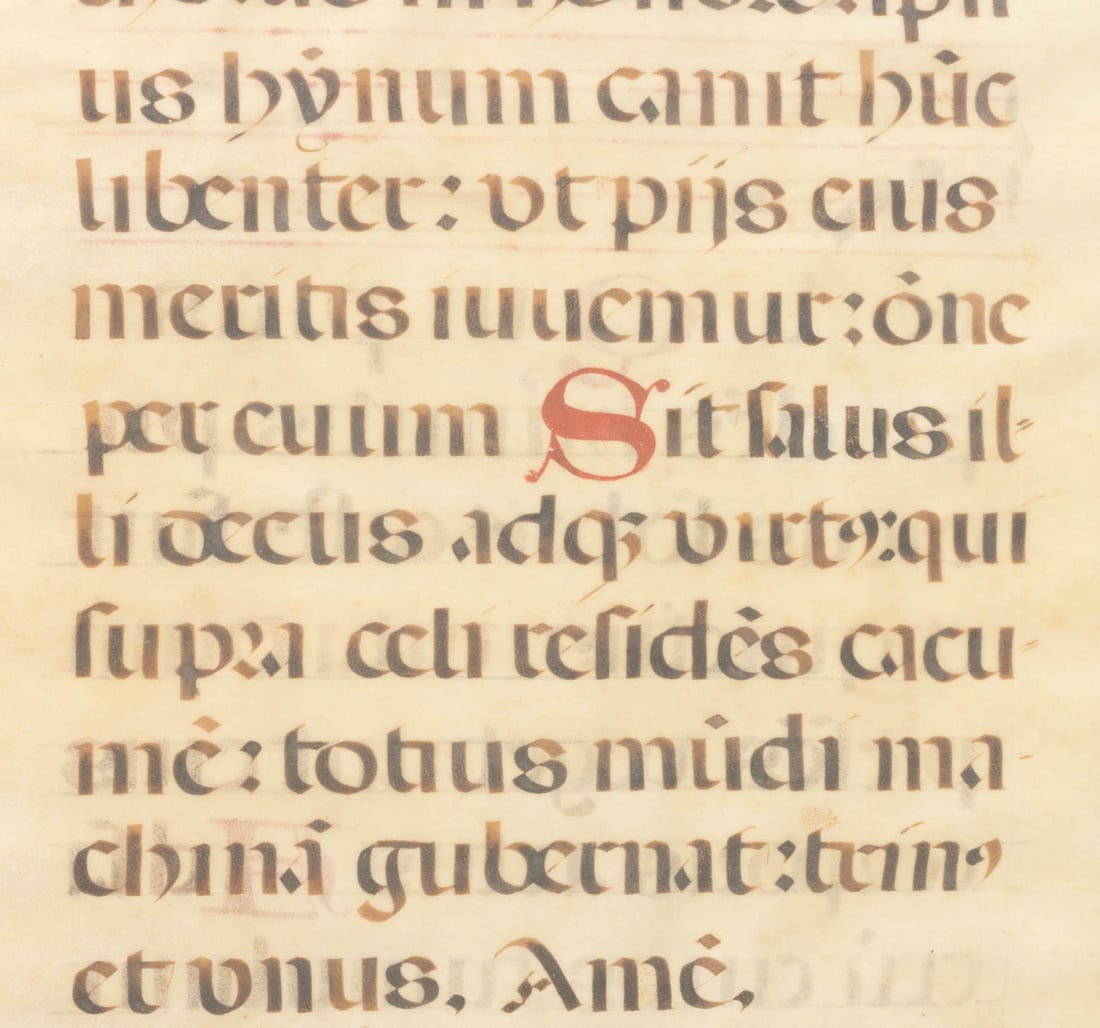 us hẏnum canit hūc
libenter: vt pijs eius
meritis iuuemur: ōne
per euum Sit salus il-
li decus adqꝫ virtꝰ: qui
supra celi residēs cacu-
mē: totius mūdi ma-
chinā gubernat: trinꝰ
et vnus. Amē.